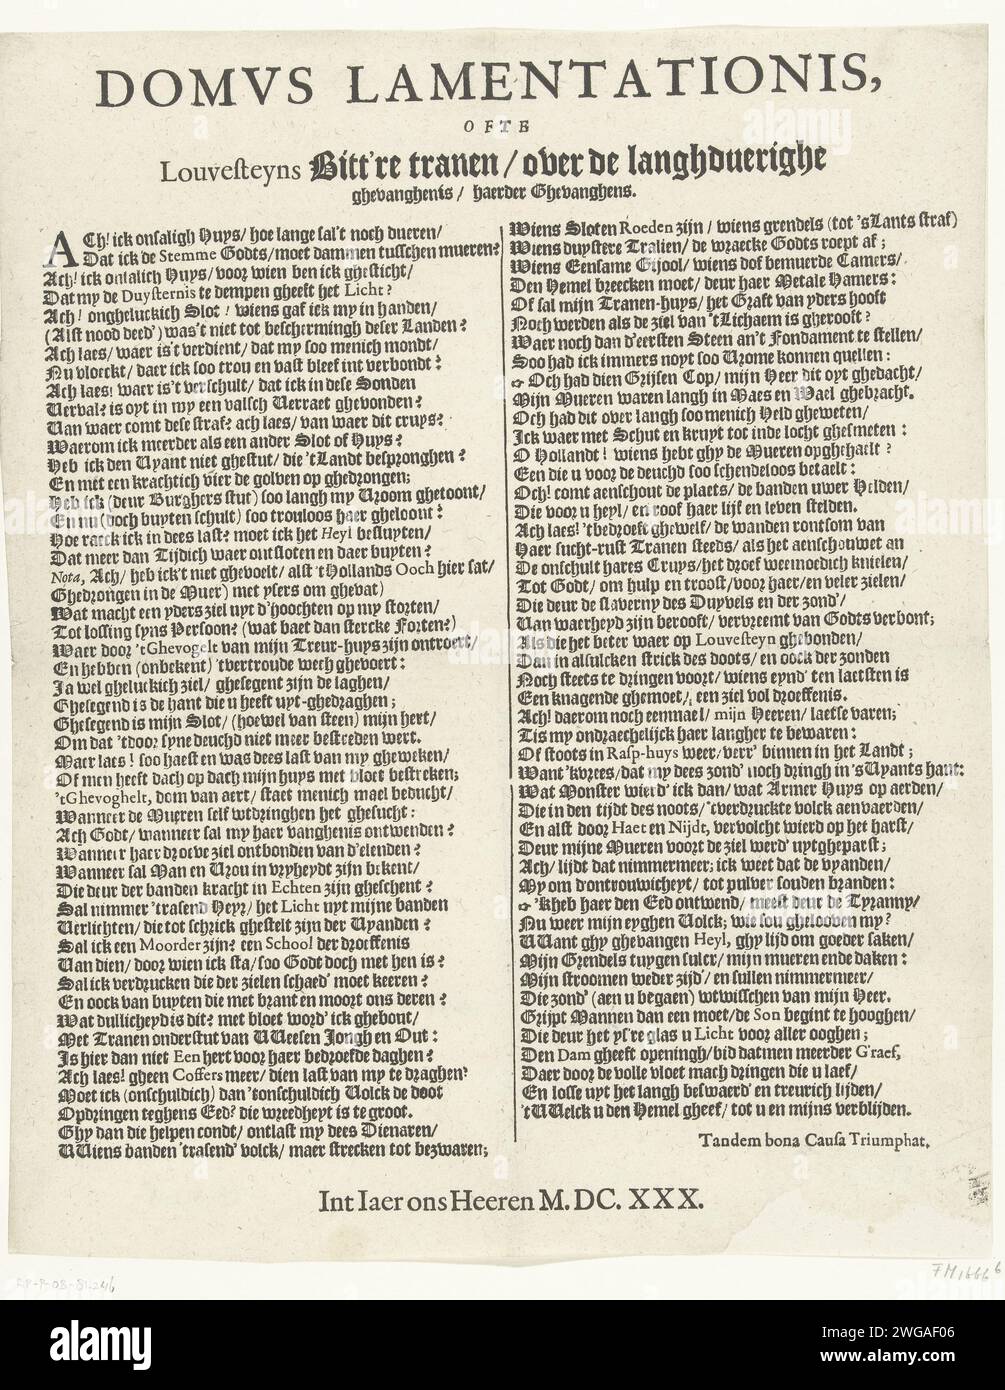 DOMVS LAMENTATIONIS,
OFTE
Louvesteyns Bitt're tranen / over de langhduerighe
ghevanghenis / haerder Ghevanghens.
ACh! ick onsaligh Huys / hoe lange sal't noch dueren /
Dat ick de Stemme Godts / moet dammen tusschen mueren?
Ach! ick onsalich Huys / voor wien ben ick ghesticht /
Dat my de Duysternis te dempen gheeft het Licht?
Ach! ongheluckich Slot! wiens gaf ick my in handen /
(Alst nood deed') was't niet tot beschermingh deser Landen?
Ach laes / waer is't verdient / dat my soo menich mondt /
Nu vloeckt / daer ick soo trou en vast bleef int verbondt?
Ach laes! waer is't verschult / dat ick in dese Sonden
Verval? is oyt in my een valsch Verraet ghevonden?
Van waer comt dese straf? ach laes / van waer dit cruys?
Waerom ick meerder als een ander Slot of Huys?
Heb ick den Vyant niet ghestut / die 't Landt bespronghen?
En met een krachtich vier de golven op ghedrongen;
Heb ick (deur Burghers stut) soo langh my Vroom ghetoont /
En nu (doch buyten schult) soo trouloos haer gheloont?
Hoe raeck ick in dees last? moet ick het Heyl besluyten /
Dat meer dan Tijdich waer ontsloten en daer buyten?
Nota, Ach / heb ick't niet ghevoelt / alst 't Hollands Ooch hier sat /
Ghedrongen in de Muer) met ysers om ghevat)
Wat macht een yders ziel uyt d'hoochten op my storten /
Tot lossing syns Persoon? (wat baet dan stercke Forten?)
Waer door 't Ghevogelt van mijn Treur-huys zijn ontroert /
En hebben (onbekent) 't vertroude wech ghevoert:
Ja wel gheluckich ziel / ghesegent zijn de laghen /
Ghesegend is de hant die u heeft uyt-ghedraghen;
Ghesegend is mijn Slot / (hoewel van steen) mijn hert /
Om dat 't door syne deuchd niet meer bestreden wert.
Maer laes! soo haest en was dees last van my gheweken /
Of men heeft dach op dach mijn huys met bloet bestreken;
't Ghevoghelt, dom van aert / staet menich mael beducht /
Wanneer de Mueren self wtdringhen het ghesucht:
Ach Godt / wanneer sal my haer vanghenis ontwenden?
Wanneer haer droeve ziel ontbonden van d'elenden?
Wanneer sal Man en Vrou in vryheydt zijn bekent /
Die deur der banden kracht in Echten zijn gheschent?
Sal nimmer 'trasend Heyr / het Licht uyt mijne banden
Verlichten / die tot schrick ghestelt zijn der Vyanden?
Sal ick een Moorder zijn? een School der droeffenis
Van dien / door wien ick sta / soo Godt doch met hen is?
Sal ick verdrucken die der zielen schaed' moet keeren?
En oock van buyten die met brant en moort ons deren?
Wat dullicheyd is dit? met bloet word' ick ghebout /
Met Tranen onderstut van VVeesen Jongh en Out:
Is hier dan niet Een hert voor haer bedroefde daghen?
Ach laes! gheen Coffers meer / dien last van my te draghen?
Moet ick (onschuldich) dan 'tonschuldich Volck de doot
Opdringen teghens Eed? die wreedheyt is te groot.
Ghy dan die helpen condt / ontlast my dees Dienaren /
VViens banden 'trasend' volck / maer strecken tot bezwaren;
Wiens Sloten Roeden zijn / wiens grendels (tot 's Lants straf)
Wiens duystere Tralien / de wraecke Godts roept af;
Wiens Eensame Gijool / wiens dof bemuerde Camers /
Den Hemel breecken moet / deur haer Metale Hamers:
Of sal mijn Tranen-huys / het Graft van yders hooft
Noch werden als de ziel van 't Lichaem is gherooft?
Waer noch dan d'eersten Steen an't Fondament te stellen /
Soo had ick immers noyt soo Vrome konnen quellen:
☞ Och had dien Grijsen Cop / mijn Heer dit oyt ghedacht /
Mijn Mueren waren langh in Maes en Wael ghebracht.
Och had dit over langh soo menich Held gheweten /
Ick waer met Schut en kruyt tot inde locht ghesmeten:
O Hollandt! wiens hebt ghy de Mueren opghehaelt?
Een die u voor de deuchd soo schendeloos betaelt:
Och! comt aenschout de plaets / de banden uwer Helden /
Die voor u heyl / en roof haer lijf en leven stelden.
Ach laes! 'tbedroeft ghewelf / de wanden rontsom van
Haer sucht-rust Tranen steeds / als het aenschouwet an
De onschult hares Cruys / het droef weemoedich knielen /
Tot Godt / om hulp en troost / voor haer / en veler zielen /
Die deur de slaverny des Duyvels en der zond' /
Van waerheyd zijn berooft / vervreemt van Godts verbont;
Als die het beter waer op Louvesteyn ghebonden /
Dan in alsulcken strick des doots / en oock der zonden
Noch steets te dringen voort / wiens eynd' ten laetsten is
Een knagende ghemoet / een ziel vol droeffenis.
Ach! daerom noch eenmael / mijn Heeren / laetse varen;
Tis my ondraechelijck haer langher te bewaren:
Of stoots in Rasp-huys weer / verr' binnen in het Landt;
Want 'kvrees / dat my dees zond' noch dringh in 's Vyants hant:
Wat Monster wierd' ick dan / wat Armer Huys op aerden /
Die in den tijdt des noots / 'tverdruckte volck aenvaerden /
En alst door Haet en Nijdt, vervolcht wierd op het harst /
Deur mijne Mueren voort de ziel werd' uytgheparst;
Ach / lijdt dat nimmermeer; ick weet dat de vyanden /
My om d'ontrouwicheyt / tot pulver souden branden:
☞ 'kheb haer den Eed ontwend / meest deur de Tyranny /
Nu weer mijn eyghen Volck; wie sou ghelooven my?
VVant ghy ghevangen Heyl, ghy lijd om goeder saken /
Mijn Grendels tuygen sulcx / mijn mueren ende daken:
Mijn stroomen weder zijd' / en sullen nimmermeer /
Die zond' (aen u begaen) wtwisschen van mijn Heer.
Grijpt Mannen dan een moet / de Son begint te hooghen /
Die deur het ys're glas u Licht voor aller ooghen;
Den Dam gheeft openingh / bid datmen meerder Graef,
Daer door de volle vloet mach dringen die u laef /
En losse uyt het langh beswaerd' en treurich lijden /
't VVelck u den Hemel gheef / tot u en mijns verblijden.
Tandem bona Causa Triumphat.
Int Iaer ons Heeren M.DC.XXX.
RP-P-OB-81.246
FM 1666 b
alamy
Image ID: 2WGAF06
www.alamy.com